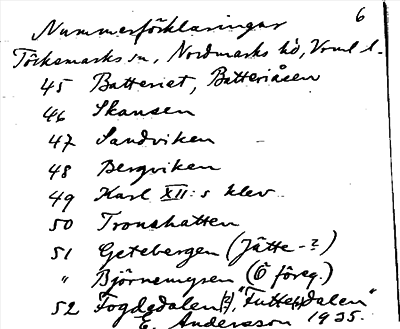 6
Nummerförklaringar
Töcksmarks sn, Nordmarks hd, Vrml l.
45 Batteriet, Batteriåsen
46 Skansen
47 Sandviken
48 Bergviken
49 Karl XII:s klev
50 Tronshatten
51 Getebergen (Jätte-?)
" Björnemysen (Ö föreg.)
52 Fogdedalen(?), "Futte(?)dalen"
E. Andersson 1935.